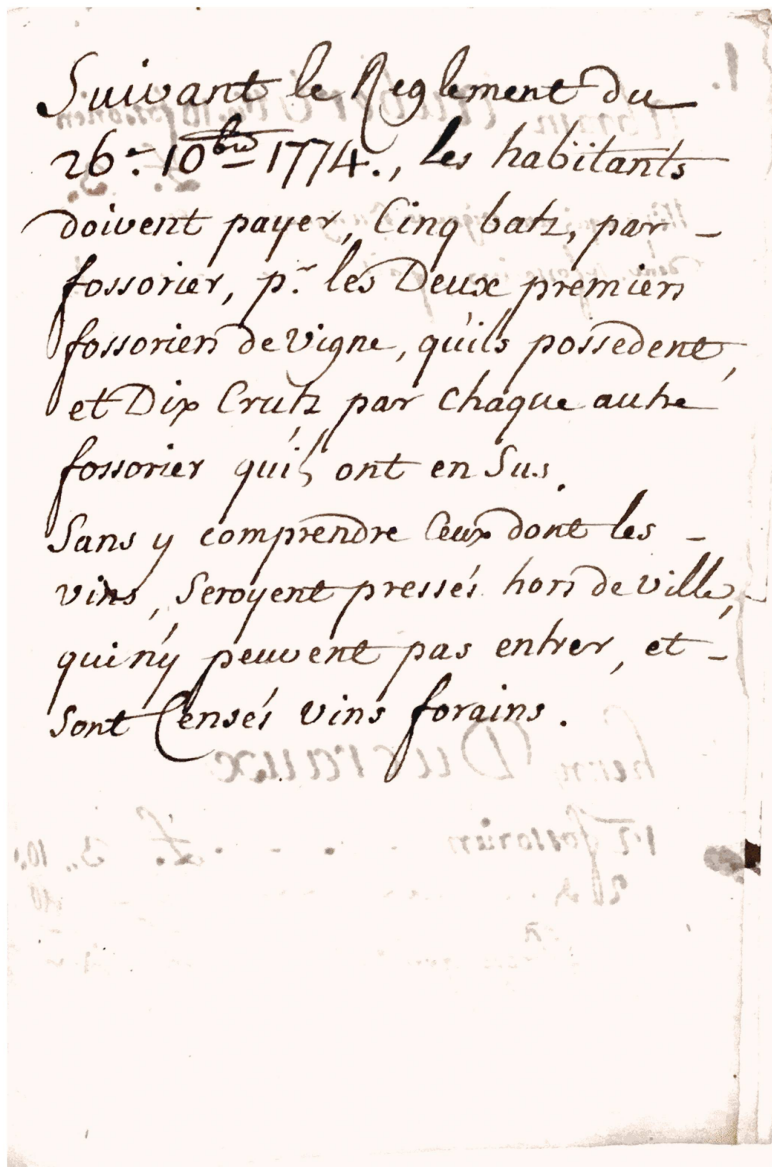 Suivant le Reglement du
26.e 10bre 1774., les habitants
doivent payer, Cinq batz, par -
fossorier, pr. les Deux premiers
fossoriers de Vigne, qu'ils possedent,
et Dix Crutz par Chaque autre
fossorier qu'ils ont en Sus.
Sans y comprendre Ceux dont les -
vins, Seroyent pressés hors de Ville,
qui n'y peuvent pas entrer, et -
sont Censés vins forains.